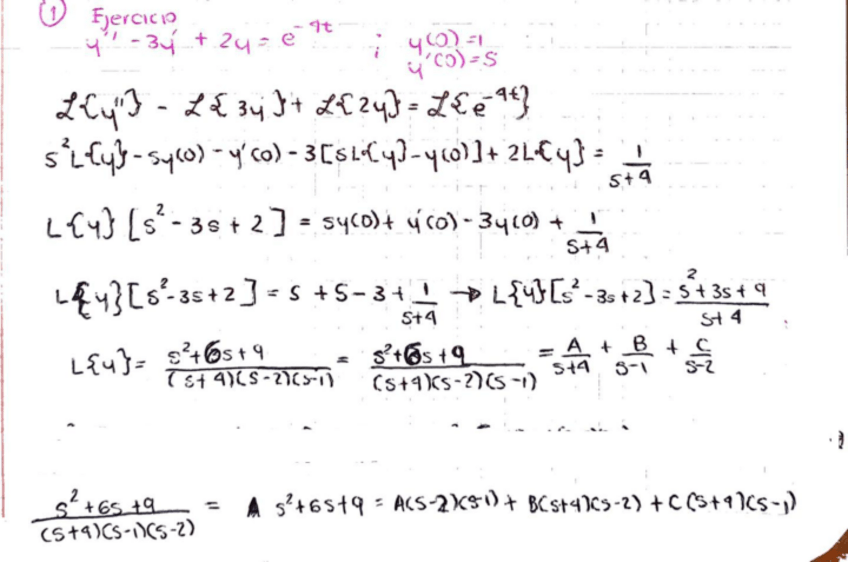 ① Ejercicio
y'' - 3y' + 2y = e^-4t ; y(0)=1
y'(0)=5
L{y''} - L{3y'} + L{2y} = L{e^-4t}
s²L{y} - sy(0) - y'(0) - 3[sL{y} - y(0)] + 2L{y} = 1/(s+4)
L{y} [s² - 3s + 2] = sy(0) + y'(0) - 3y(0) + 1/(s+4)
L{y}[s² - 3s + 2] = s + 5 - 3 + 1/(s+4) → L{y}[s² - 3s + 2] = (s² + 3s + 9)/(s+4)
L{y} = (s²+6s+9)/((s+4)(s-2)(s-1)) = (s²+6s+9)/((s+4)(s-2)(s-1)) = A/(s+4) + B/(s-1) + C/(s-2)
(s²+6s+9)/((s+4)(s-1)(s-2)) = A s²+6s+9 = A(s-2)(s-1) + B(s+4)(s-2) + C(s+4)(s-1)